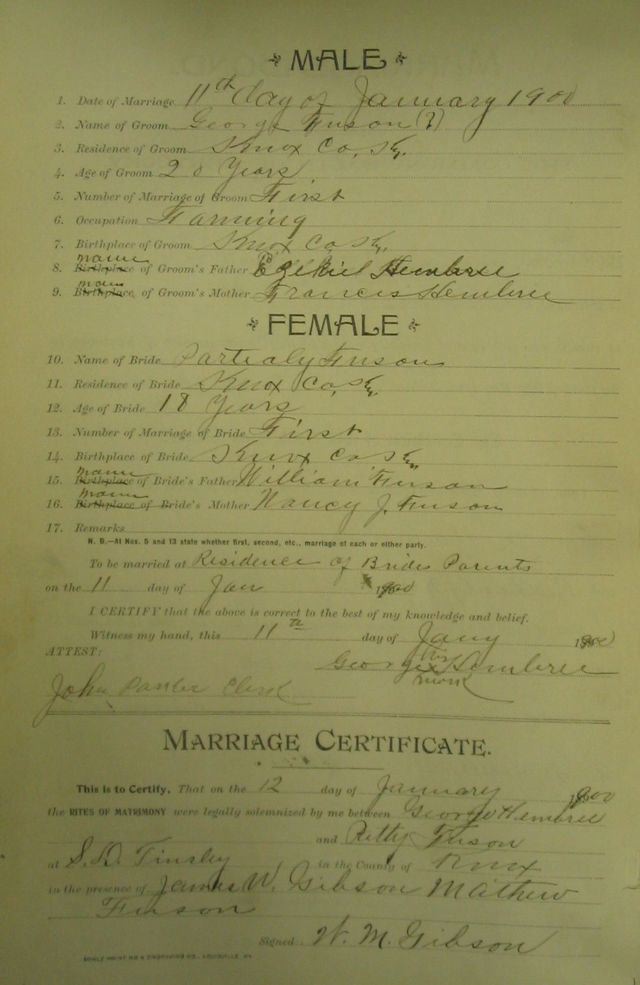 MALE
1. Date of Marriage 11th day of January 1900
2. Name of Groom George Fuson (?)
3. Residence of Groom Knox Co, Ky.
4. Age of Groom 20 Years
5. Number of Marriage of Groom First
6. Occupation Farming
7. Birthplace of Groom Knox Co Ky.
name
8. Birthplace of Groom's Father Ezekiel Hembree
name
9. Birthplace of Groom's Mother Francis Hembree
FEMALE
10. Name of Bride Partialy Fuson
11. Residence of Bride Knox Co, Ky.
12. Age of Bride 18 Years
13. Number of Marriage of Bride First
14. Birthplace of Bride Knox Co Ky
name
15. Birthplace of Bride's Father William Fuson
name
16. Birthplace of Bride's Mother Nancy J. Fuson
17. Remarks
N. B.—At Nos. 5 and 13 state whether first, second, etc., marriage of each or either party.
To be married at Residence of Brides Parents
on the 11 day of Jan 1900
I CERTIFY that the above is correct to the best of my knowledge and belief.
Witness my hand, this 11th day of Jany 1900
ATTEST:
his
George x Hembree
mark
John Parker Clerk
MARRIAGE CERTIFICATE.
This is to Certify, That on the 12 day of January 1900
the RITES OF MATRIMONY were legally solemnized by me between George Hembree
and Fuson
at S. D. Tinsley in the County of Knox
in the presence of James W. Gibson Mathew
Fuson
Signed W. M. Gibson